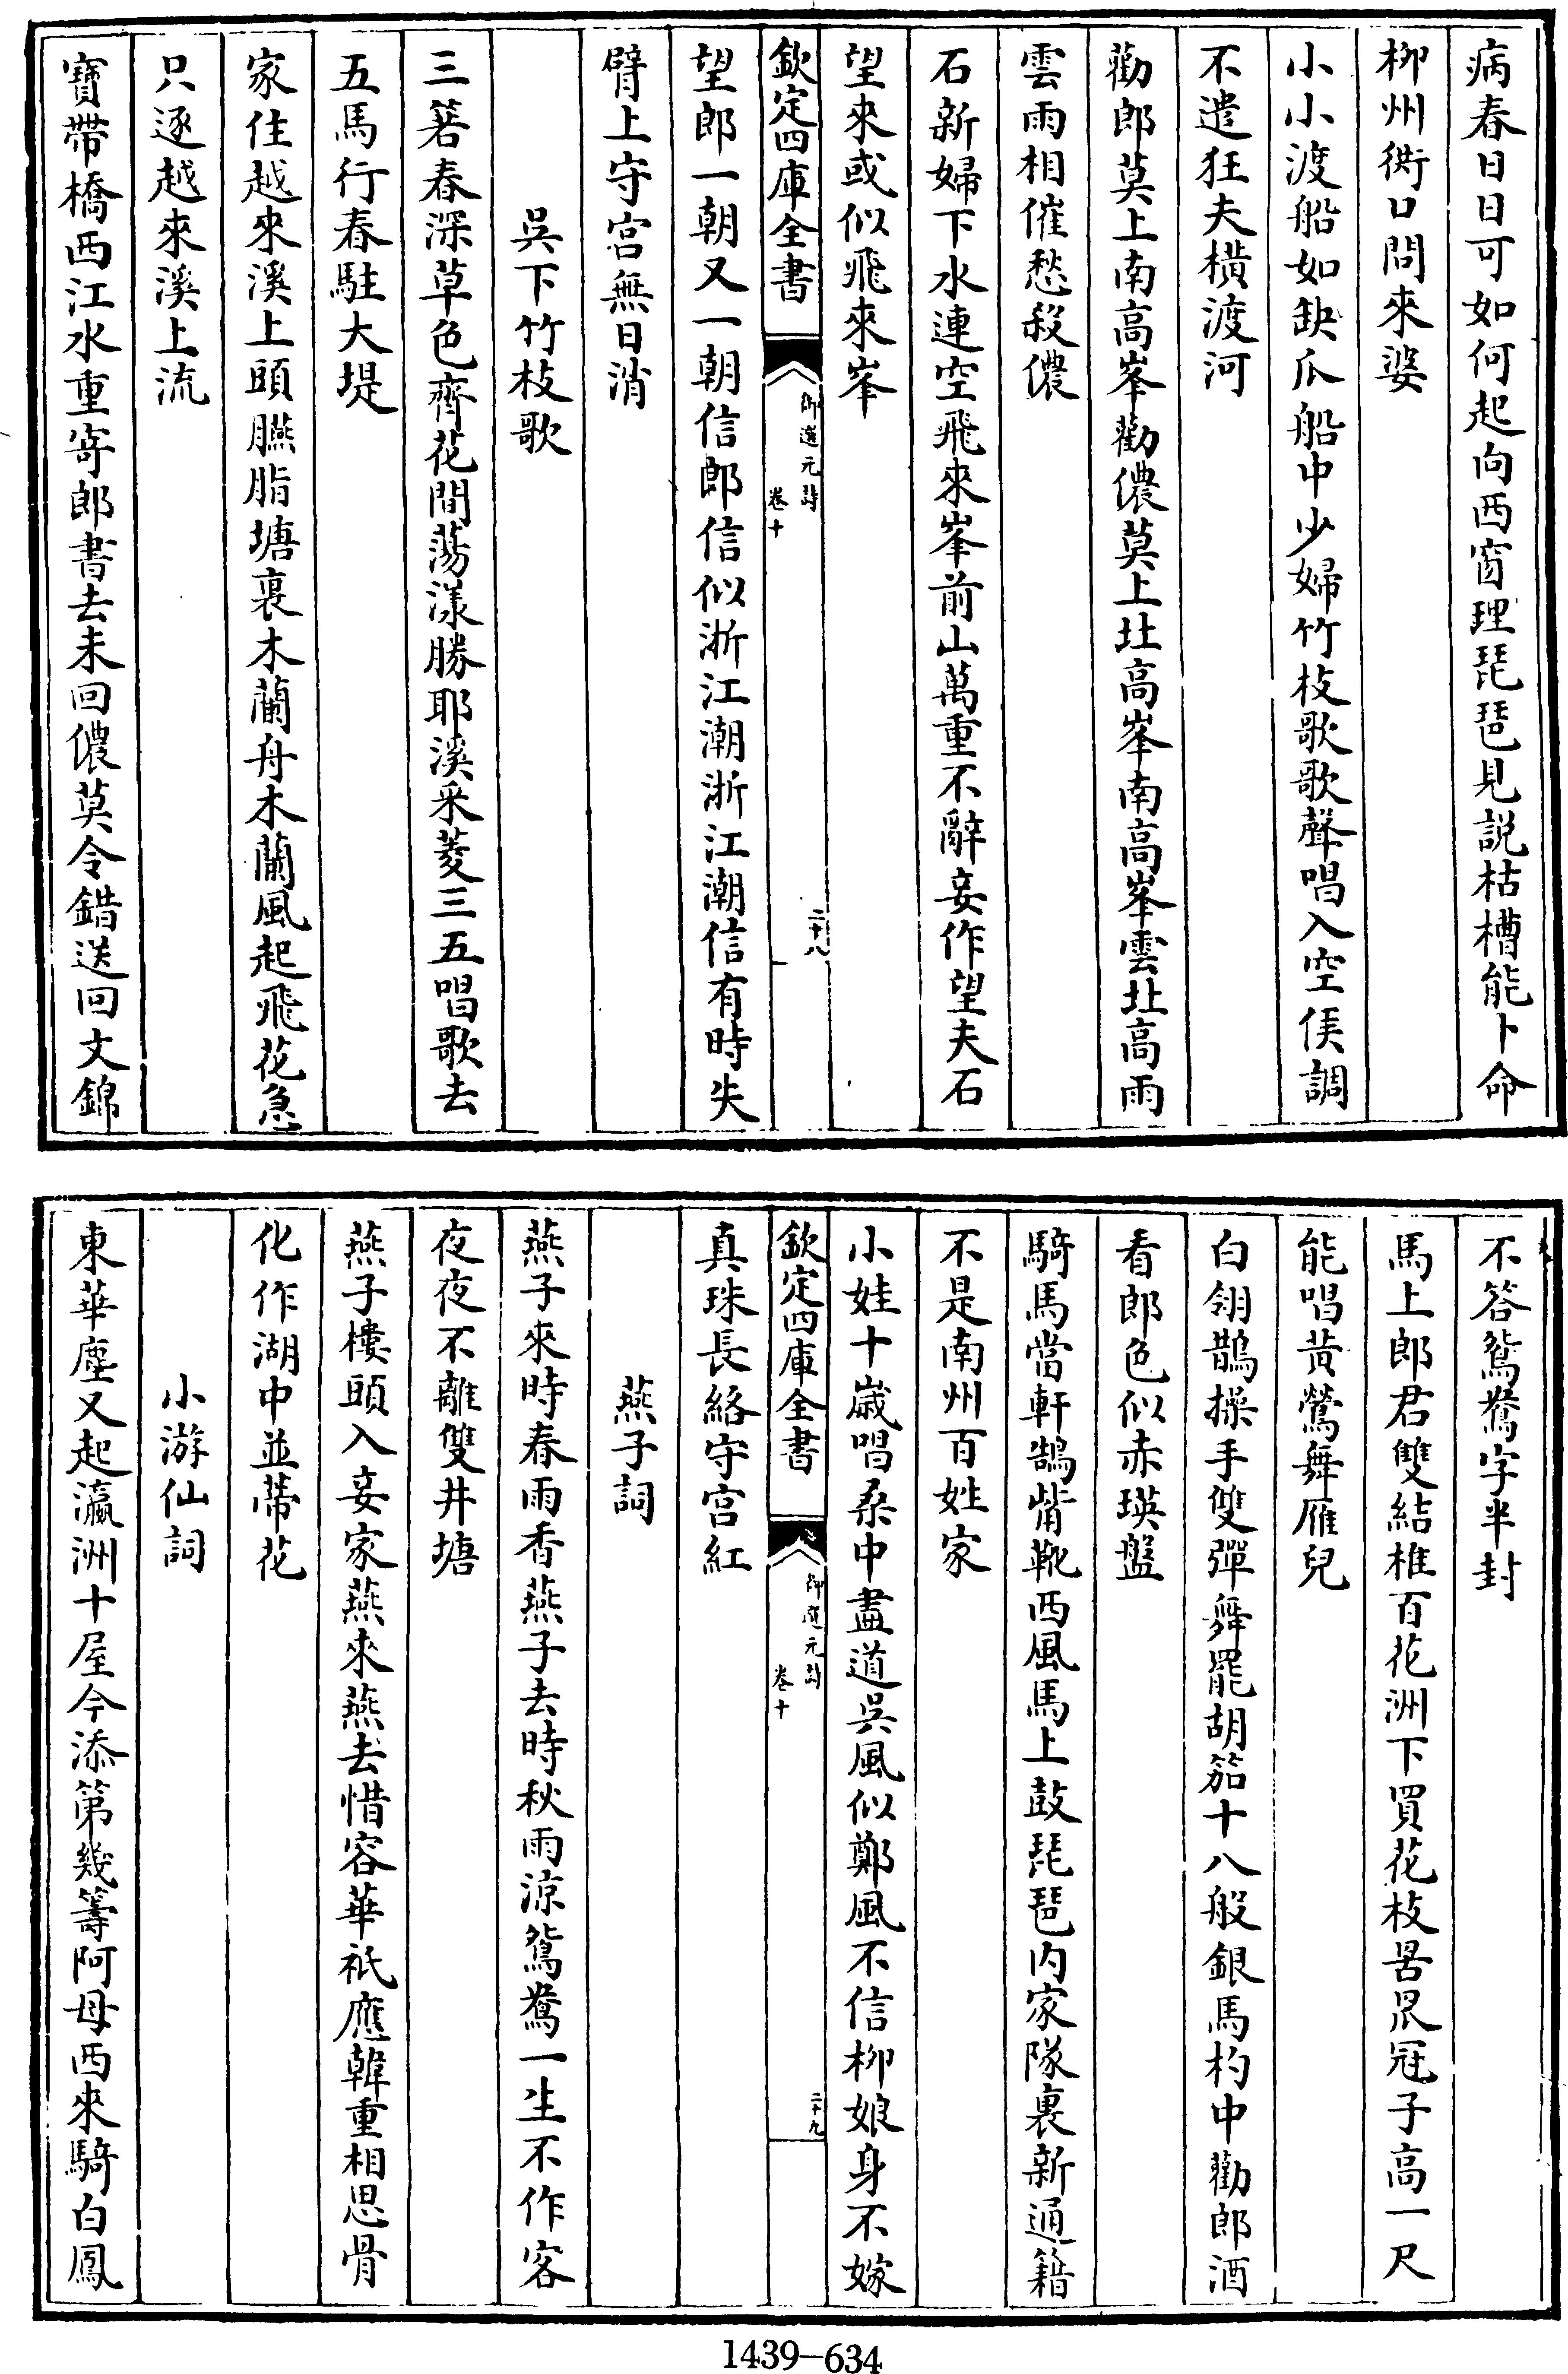 病春日日可如何起向西窗理琵琶見說枯槽能卜命
柳州衖口問來婆
小小渡船如缺瓜船中少婦竹枝歌歌聲唱入空侯調
不遣狂夫橫渡河
勸郎莫上南高峯勸儂莫上北高峯南高峯雲北高雨
雲雨相催愁殺儂
石新婦下水連空飛來峯前山萬重不辭妾作望夫石
望來或似飛來峯
欽定四庫全書
御選元詩
卷十
二十八
望郎一朝又一朝信郎信似浙江潮浙江潮信有時失
臂上守宮無日消
吳下竹枝歌
三箬春深草色齊花間蕩漾勝耶溪采菱三五唱歌去
五馬行春駐大堤
家住越來溪上頭臙脂塘裏木蘭舟木蘭風起飛花急
只逐越來溪上流
寶帶橋西江水重寄郎書去未回儂莫令錯送回文錦
不答鴛鴦字半封
馬上郎君雙結椎百花洲下買花枝罟罛冠子高一尺
能唱黃鶯舞雁兒
白翎鵲操手雙彈舞罷胡笳十八般銀馬杓中勸郎酒
看郎色似赤瑛盤
騎馬當軒鵠觜靴西風馬上鼓琵琶內家隊裏新通籍
不是南州百姓家
小娃十歲唱桑中盡道吳風似鄭風不信柳娘身不嫁
欽定四庫全書
御選元詩
卷十
二十九
真珠長絡守宮紅
燕子詞
燕子來時春雨香燕子去時秋雨涼鴛鴦一生不作客
夜夜不離雙井塘
燕子樓頭入妾家燕來燕去惜容華祇應韓重相思骨
化作湖中並蒂花
小游仙詞
東華塵又起瀛洲十屋今添第幾籌阿母西來騎白鳳
1439-634